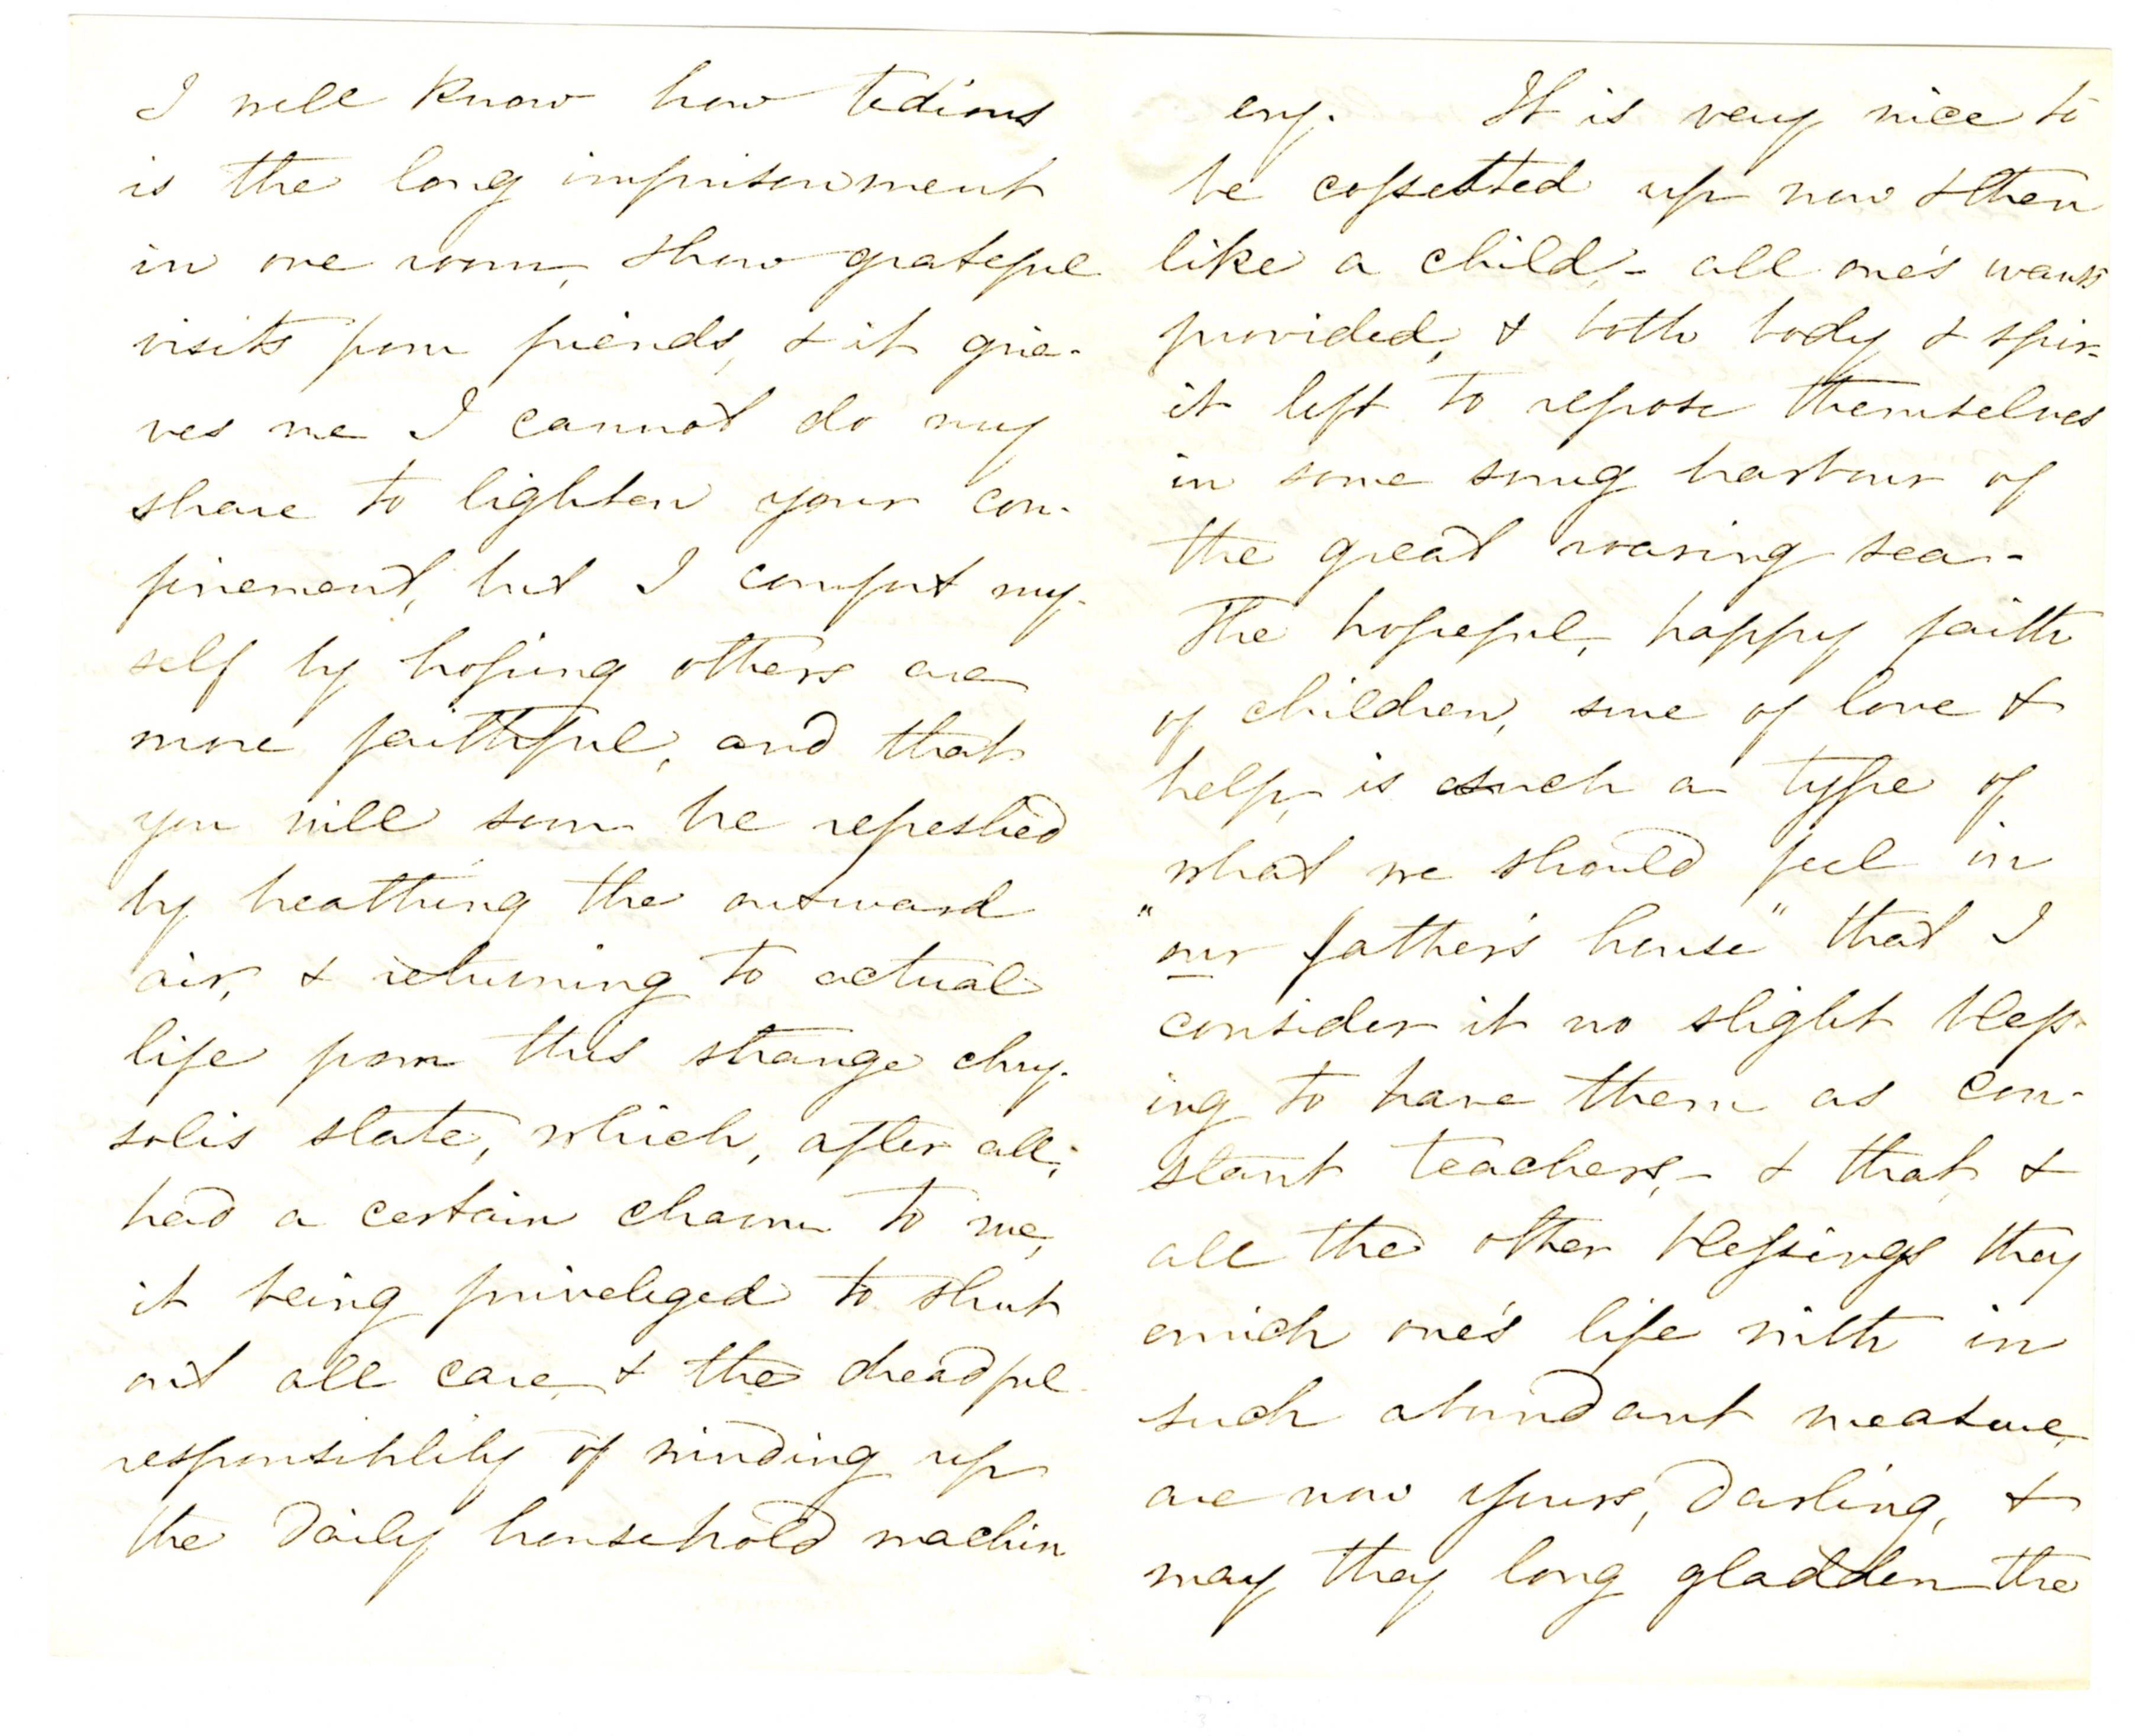 I well know how tedious
is the long imprisonment
in one room, & how grateful
visits from friends, & it grie-
ves me I cannot do my
share to lighten your con-
finement, but I comfort my-
self by hoping others are
more faithful, and that
you will soon be refreshed
by breathing the outward
air, & returning to actual
life from this strange chry-
solis state, which, after all,
had a certain charm to me,
it being priveleged to shut
out all care, & the dreadful
responsiblility of winding up
the daily household machin
ery. It is very nice to
be cossetted up now & then
like a child, - all one's wants
provided, & both body & spir-
it left to repose themselves
in some snug harbour of
the great roaring sea -
The hopeful, happy faith
of children, sure of love &
help, is such a type of
what we should feel in
"our father's house" that I
consider it no slight bless-
ing to have them as con-
stant teachers, - & that &
all the other blessings they
enrich one's life with in
such abundant measure,
are now yours, darling, &
may they long gladden the